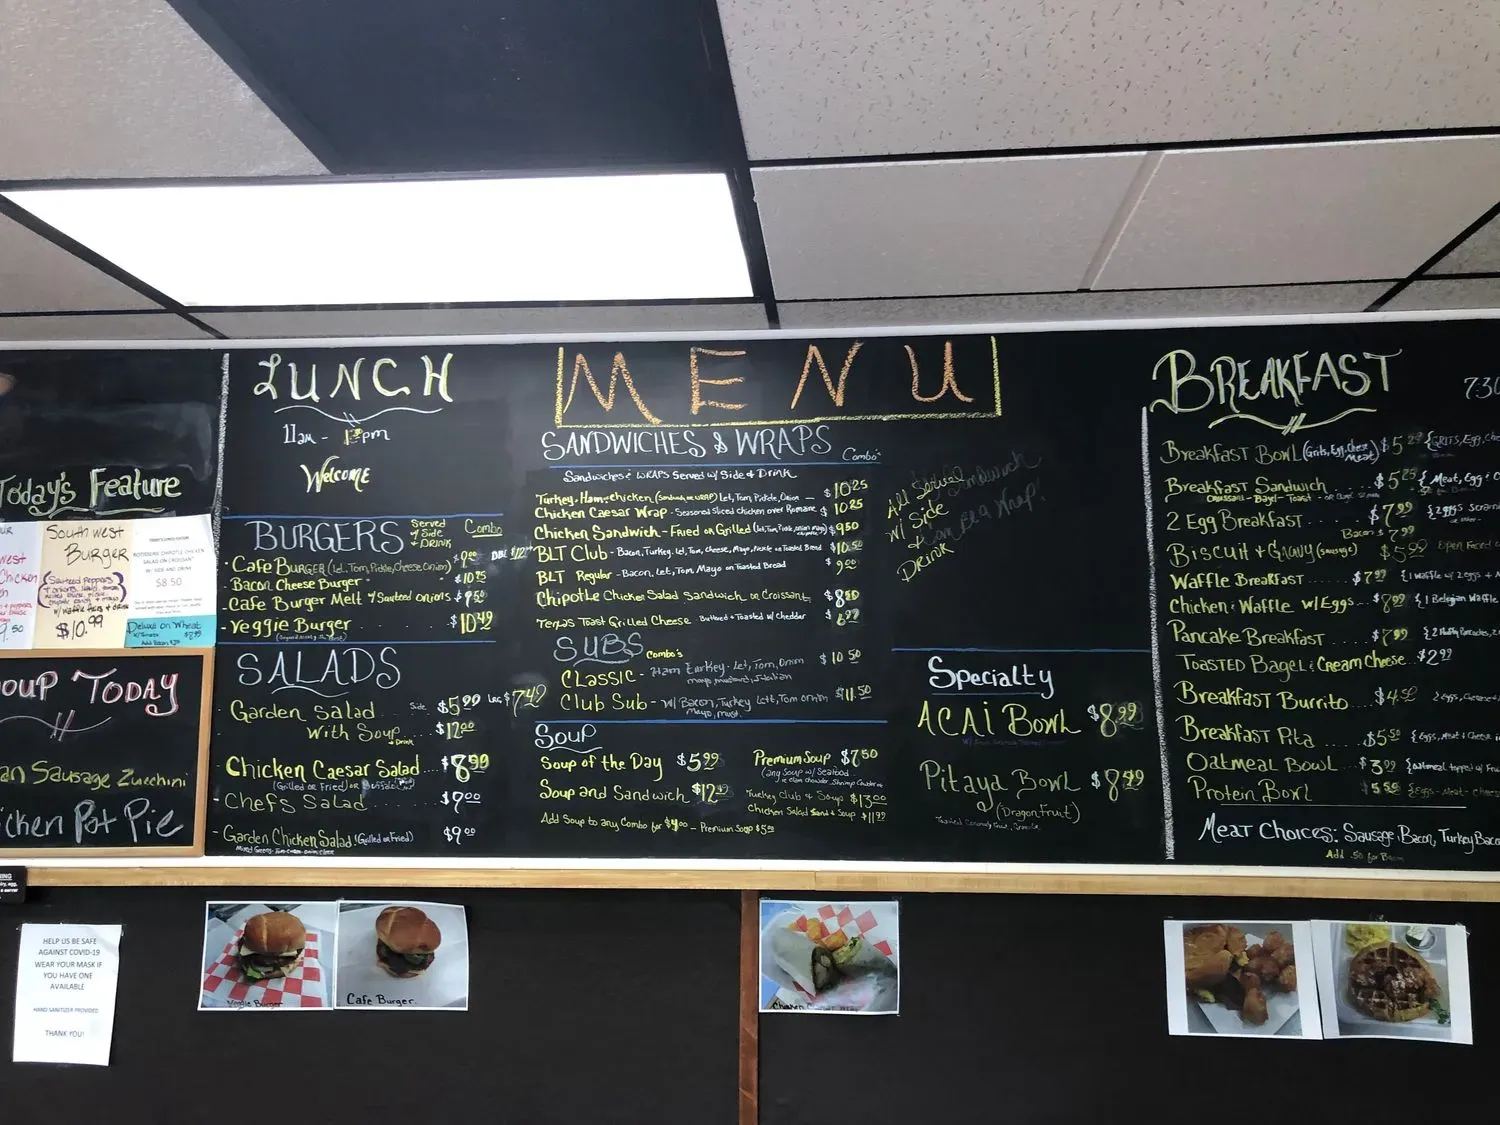 Today's Feature
South west
Burger
w/ waffle fries & drink
$10.99
$8.50
9.50
Deluxe on Wheat
Soup Today
an Sausage Zucchini
icken Pot Pie
LUNCH
11am - pm
Welcome
BURGERS
Served
w/ Side
& DRINK
Combo
- Cafe Burger (Let, Tom, Pickle, Cheese, Onion) $9.00
- Bacon Cheese Burger - $10.25
- Cafe Burger Melt w/ Sauteed onions $9.50
- Veggie Burger - $10.49
SALADS
Garden Salad Side $5.99 Lrg $7.49
With Soup $12.00
+ Drink
- Chicken Caesar Salad $8.99
(Grilled or Fried) or
- Chefs Salad $9.00
- Garden Chicken Salad (Grilled or Fried) $9.00
MENU
SANDWICHES & WRAPS
Combo's
Sandwiches & WRAPS Served w/ Side & Drink
Turkey. Ham & chicken (Sandwich or WRAP) Let, Tom, Pickle, Onion — $10.25
Chicken Caesar Wrap - Seasoned Sliced Chicken over Romaine $10.25
Chicken Sandwich - Fried or Grilled $9.50
BLT Club - Bacon, Turkey, Let, Tom, Cheese, Mayo, Pickle on Toasted Bread $10.50
BLT Regular - Bacon, Let, Tom, Mayo on Toasted Bread 9.00
Chipotle Chicken Salad Sandwich on Croissant
Texas Toast Grilled Cheese Buttered & Toasted w/ Cheddar
All Served
w/ Side
&
Drink
Sandwich
Can Be a Wrap!
SUBS Combo's
Classic - Ham, Turkey, Let, Tom, Onion $10.50
Club Sub - w/ Bacon, Turkey, Lett, Tom, onion $11.50
Mayo, Must.
Soup
Soup of the Day $5.99
Soup and Sandwich $12.49
Add Soup to any Combo for $4.00 - Premium Soup $5.00
Premium Soup $7.50
(any Soup w/ Seafood
Turkey Club & Soup $13.00
Chicken Salad Sand & Soup $11.99
Specialty
ACAI Bowl $8.99
Pitaya Bowl $8.49
(Dragon Fruit)
BREAKFAST
7:30
Breakfast Bowl (Grits, Egg, Cheese, Meat)
Breakfast Sandwich $5.25 {Meat, Egg
Croissant - Bagel - Toast
2 Egg Breakfast $7.99
Bacon $7.99
Biscuit & Gravy (sausage)
Waffle Breakfast $7.99 {1 waffle w/ 2 eggs +
Chicken & Waffle w/ Eggs $8.99 {1 Belgian Waffle
Pancake Breakfast $7.99 {2 Fluffy Pancakes,
Toasted Bagel & Cream Cheese $2.99
Breakfast Burrito $4.50 2 eggs, Cheese
Breakfast Pita $5.50 {Eggs, Meat & Cheese
Oatmeal Bowl $3.99 {oatmeal topped w/
Protein Bowl $5.50 {Eggs - Meat - Cheese
Meat Choices: Sausage, Bacon, Turkey Bacon
Add .50 for Bacon
HELP US BE SAFE
AGAINST COVID-19
WEAR YOUR MASK IF
YOU HAVE ONE
AVAILABLE
HAND SANITIZER PROVIDED
THANK YOU!
Veggie Burger
Cafe Burger.